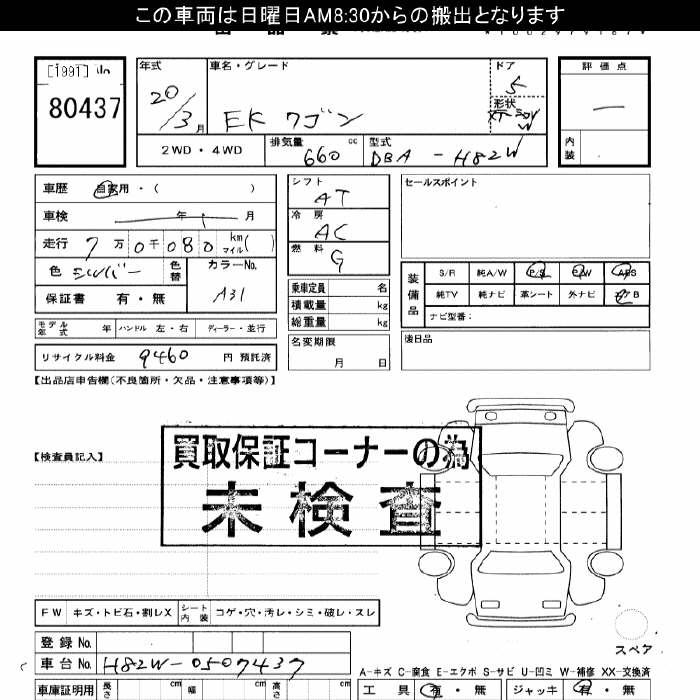 この車両は日曜日AM8:30からの搬出となります
[1991]
80437
年式
20/3月
車名・グレード
EK ワゴン
ドア
5
形状
評価点
内装
2WD・4WD
排気量
660 cc
型式
DBA-H82W
車歴 自家用・( )
車検 年 月
走行 7万0千080 km マイル( )
色 シルバー
色替
カラーNo.
A31
保証書 有・無
モデル年式 年
ハンドル 左・右
ディーラー・並行
リサイクル料金 9460 円 預託済
シフト
AT
冷房
AC
燃料
G
乗車定員 名
積載量 kg
総重量 kg
名変期限
月 日
セールスポイント
装備品
S/R 純A/W P/S P/W ABS
純TV 純ナビ 革シート 外ナビ エアB
ナビ型番:
後日品
【出品店申告欄(不良箇所・欠品・注意事項等)】
【検査員記入】
買取保証コーナーの為
未検査
FW キズ・トビ石・割レX
シート内装 コゲ・穴・汚レ・シミ・破レ・スレ
スペア
登録 No.
車台 No. H82W-0507437
A-キズ C-腐食 E-エクボ S-サビ U-凹ミ W-補修 XX-交換済
車庫証明用 長さ cm 幅 cm 高さ cm
工具 有・無 ジャッキ 有・無